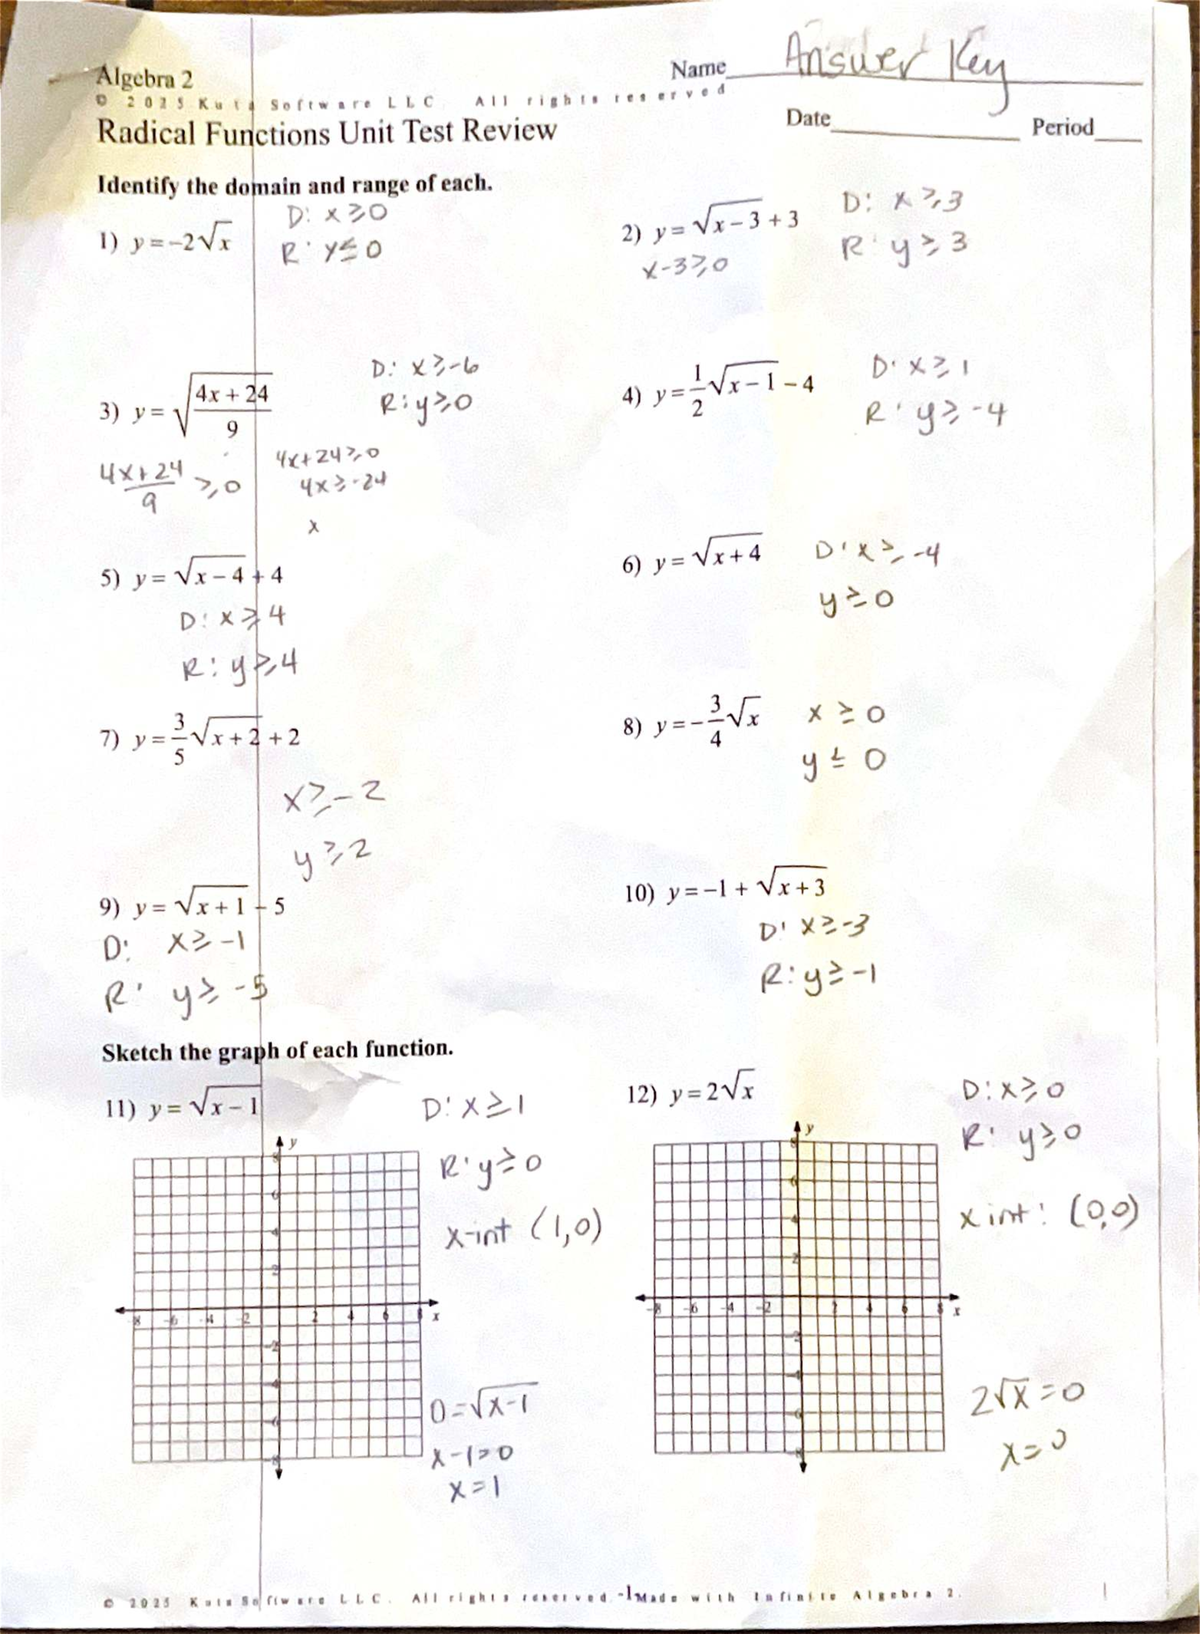 Algebra 2
Name Answer Key
© 2025 Kuta Software LLC. All rights reserved
Radical Functions Unit Test Review
Date
Period
Identify the domain and range of each.
1) y = -2√x
D: x ≥ 0
R: y ≤ 0
2) y = √(x - 3) + 3
x - 3 ≥ 0
D: x ≥ 3
R: y ≥ 3
3) y = √((4x + 24)/9)
D: x ≥ -6
R: y ≥ 0
(4x + 24)/9 ≥ 0
4x + 24 ≥ 0
4x ≥ -24
x
4) y = 1/2 √(x - 1) - 4
D: x ≥ 1
R: y ≥ -4
5) y = √(x - 4) + 4
D: x ≥ 4
R: y ≥ 4
6) y = √(x + 4)
D: x ≥ -4
y ≥ 0
7) y = 3/5 √(x + 2) + 2
x ≥ -2
y ≥ 2
8) y = -3/4 √x
x ≥ 0
y ≤ 0
9) y = √(x + 1) - 5
D: x ≥ -1
R: y ≥ -5
10) y = -1 + √(x + 3)
D: x ≥ -3
R: y ≥ -1
Sketch the graph of each function.
11) y = √(x - 1)
D: x ≥ 1
R: y ≥ 0
x-int (1,0)
y
8
6
4
2
-8 -6 -4 -2 2 4 6 8 x
-2
-4
-6
-8
0 = √(x - 1)
x - 1 = 0
x = 1
12) y = 2√x
D: x ≥ 0
R: y ≥ 0
x int: (0,0)
y
8
6
4
2
-8 -6 -4 -2 2 4 6 8 x
-2
-4
-6
-8
2√x = 0
x = 0
© 2025 Kuta Software LLC. All rights reserved. -1- Made with Infinite Algebra 2.